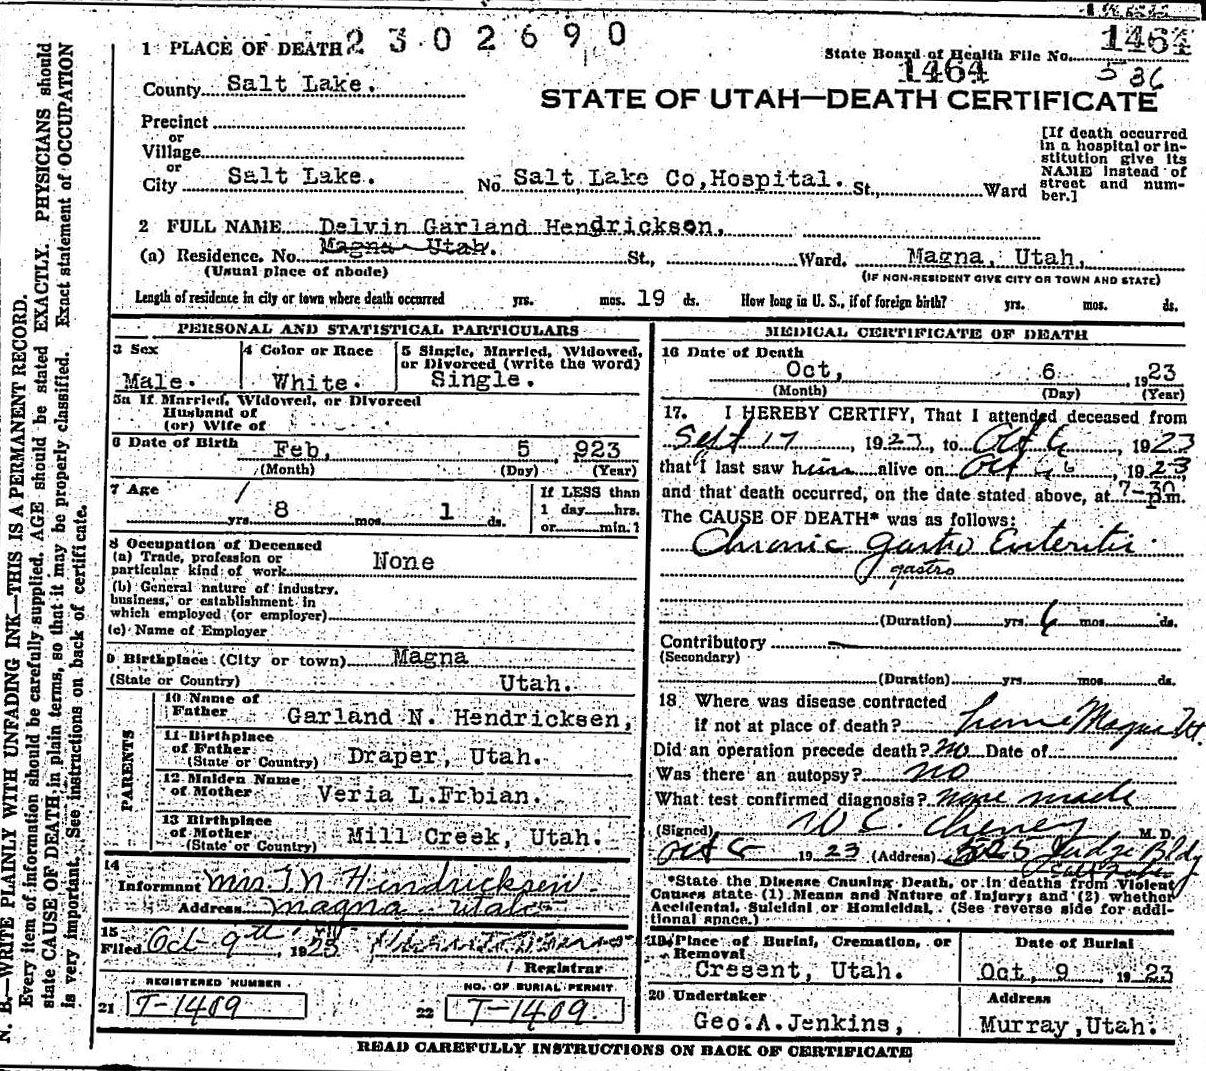 1 PLACE OF DEATH 2 3 0 2 6 9 0
State Board of Health File No. 1464
1464 536
County Salt Lake.
STATE OF UTAH—DEATH CERTIFICATE
Precinct
or
Village
or
City Salt Lake. No. Salt Lake Co, Hospital. St., Ward
[If death occurred
in a hospital or in-
stitution give its
NAME instead of
street and num-
ber.]
2 FULL NAME Delvin Garland Hendricksen,
(a) Residence. No. Magna Utah. St., Ward. Magna, Utah,
(Usual place of abode) (IF NON-RESIDENT GIVE CITY OR TOWN AND STATE)
Length of residence in city or town where death occurred yrs. mos. 19 ds. How long in U. S., if of foreign birth? yrs. mos. ds.
PERSONAL AND STATISTICAL PARTICULARS
3 Sex
Male.
4 Color or Race
White.
5 Single, Married, Widowed,
or Divorced (write the word)
Single.
5a If Married, Widowed, or Divorced
Husband of
(or) Wife of
6 Date of Birth Feb, 5, 923
(Month) (Day) (Year)
7 Age
8 1
yrs. mos. ds.
If LESS than
1 day hrs.
or min.?
8 Occupation of Deceased
(a) Trade, profession or
particular kind of work None
(b) General nature of industry,
business, or establishment in
which employed (or employer)
(c) Name of Employer
9 Birthplace (City or town) Magna
(State or Country) Utah.
PARENTS
10 Name of
Father Garland N. Hendricksen,
11 Birthplace
of Father
(State or Country) Draper, Utah.
12 Maiden Name
of Mother Veria L.Frbian.
13 Birthplace
of Mother
(State or Country) Mill Creek, Utah.
14
Informant Mrs I N Hindricksen
Address Magna Utah
15
Filed Oct 9th, 1923
Registrar
REGISTERED NUMBER
21 T-1409
NO. OF BURIAL PERMIT
22 T-1409.
MEDICAL CERTIFICATE OF DEATH
16 Date of Death
Oct, 6, 1923
(Month) (Day) (Year)
17. I HEREBY CERTIFY, That I attended deceased from
Sept 17, 1923, to Oct 6, 1923
that I last saw him alive on Oct 6, 1923
and that death occurred, on the date stated above, at 7-30 p.m.
The CAUSE OF DEATH* was as follows:
Chronic gastro Enteritis
gastro
(Duration) yrs. 6 mos. ds.
Contributory
(Secondary)
(Duration) yrs. mos. ds.
18 Where was disease contracted
if not at place of death? home Magna Ut.
Did an operation precede death? no Date of
Was there an autopsy? no
What test confirmed diagnosis? none made
(Signed) W C. Cheney M. D.
Oct 6 1923 (Address) 525 Judge Bldg
*State the Disease Causing Death, or in deaths from Violent
Causes state (1) Means and Nature of Injury; and (2) whether
Accidental, Suicidal or Homicidal. (See reverse side for addi-
tional space.)
19 Place of Burial, Cremation, or
Removal
Cresent, Utah.
Date of Burial
Oct, 9 1923
20 Undertaker
Geo.A.Jenkins,
Address
Murray, Utah.
READ CAREFULLY INSTRUCTIONS ON BACK OF CERTIFICATE
N. B.—WRITE PLAINLY WITH UNFADING INK—THIS IS A PERMANENT RECORD.
Every item of information should be carefully supplied. AGE should be stated EXACTLY. PHYSICIANS should
state CAUSE OF DEATH in plain terms, so that it may be properly classified. Exact statement of OCCUPATION
is very important. See instructions on back of certificate.